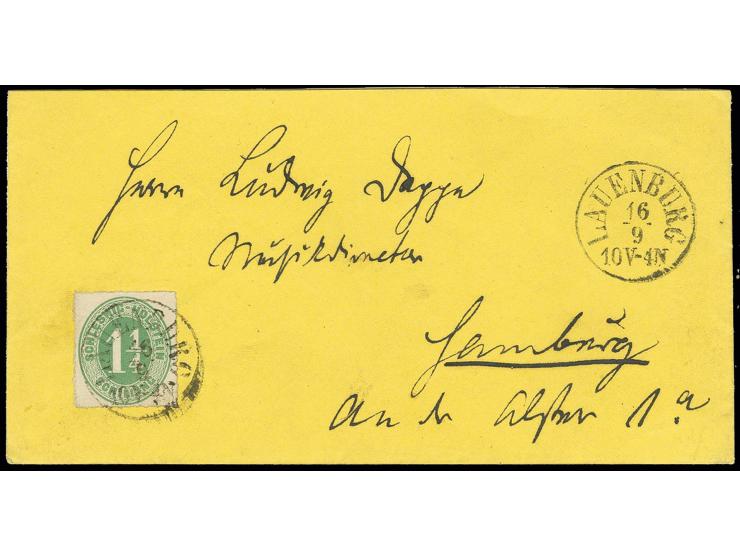 Herrn Ludwig Deppe
Musikdirector
Hamburg
An der Alster 1 a
LAUENBURG
16
9
10V-4N
SCHLESWIG-HOLSTEIN
1¼
SCHILLING